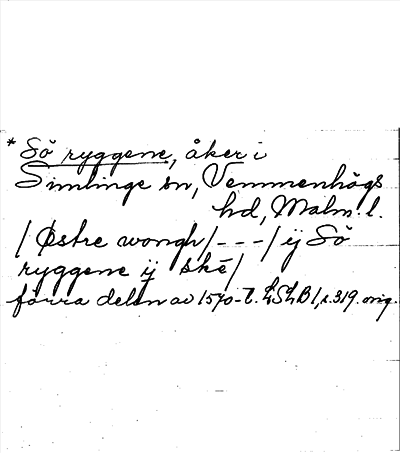 * Sö ryggene, åker i
Simlinge sn, Vemmenhögs
hd, Malm. l.
/ Østre wongh / - - - / ij Sö
ryggene ij skē /
förra delen av 1570-t. LSLB 1, s. 319. orig.